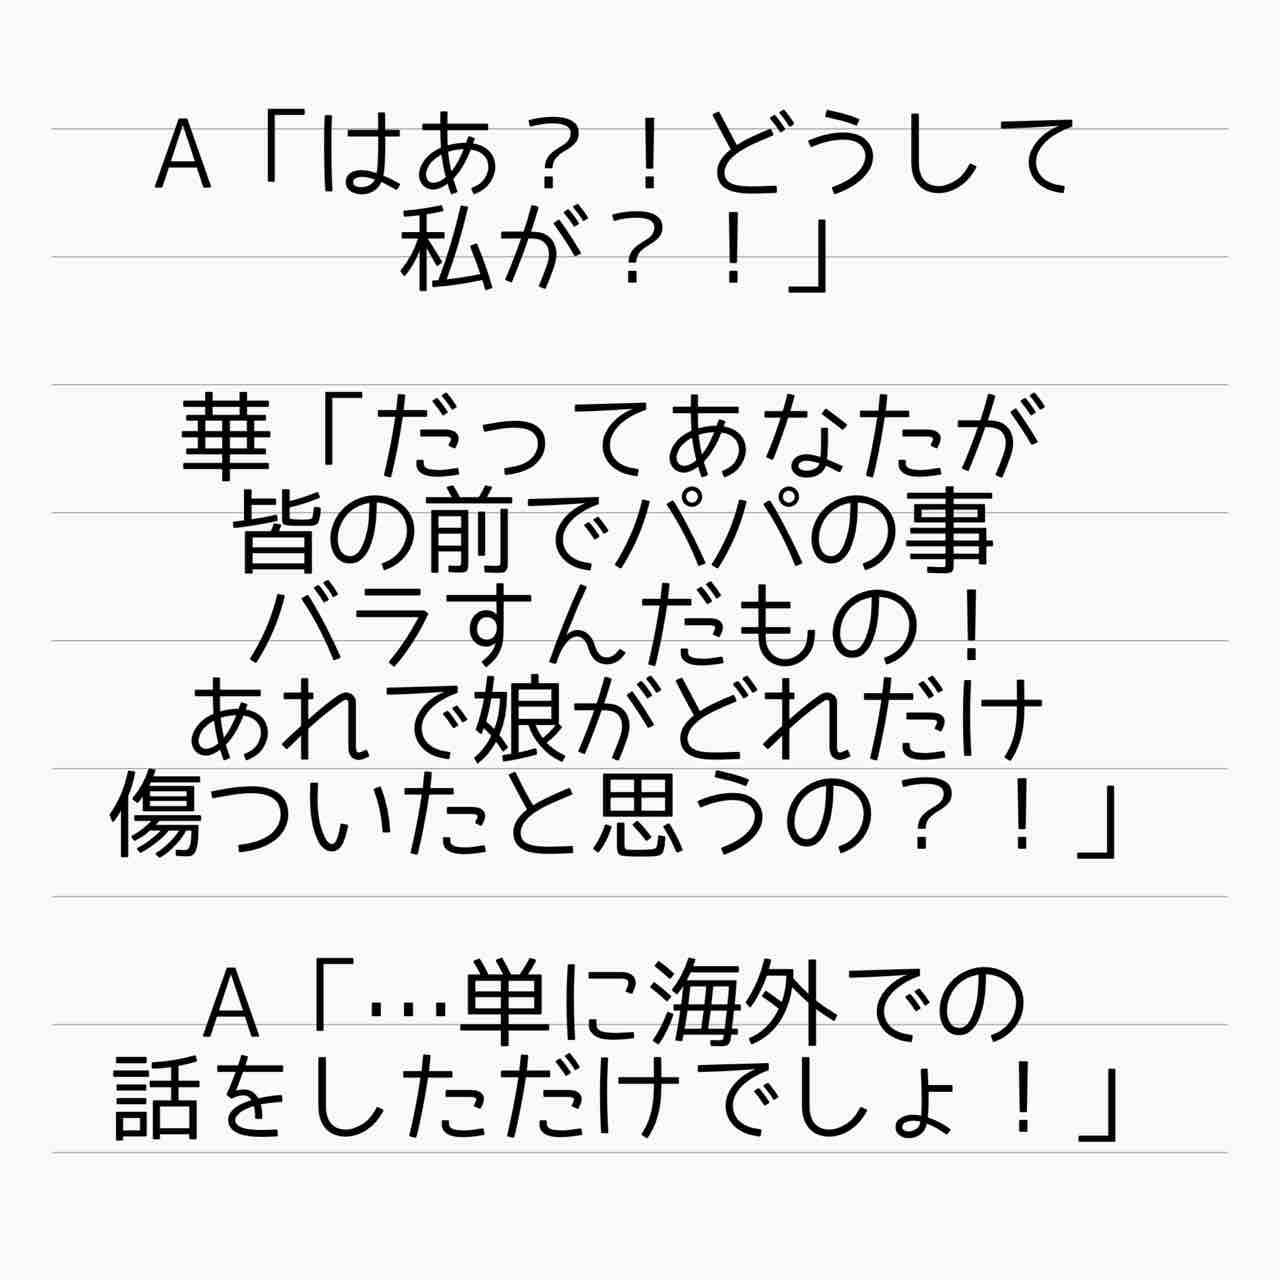 A「はあ？！どうして
私が？！」
華「だってあなたが
皆の前でパパの事
バラすんだもの！
あれで娘がどれだけ
傷ついたと思うの？！」
A「…単に海外での
話をしただけでしょ！」